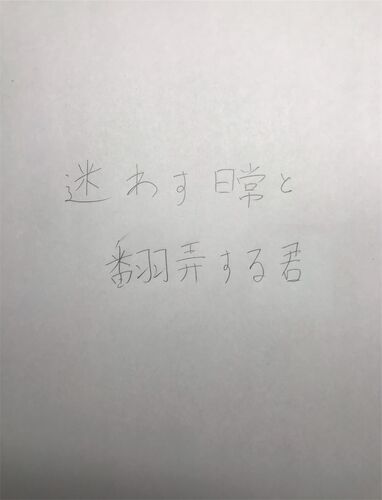 迷わす日常と
翻弄する君